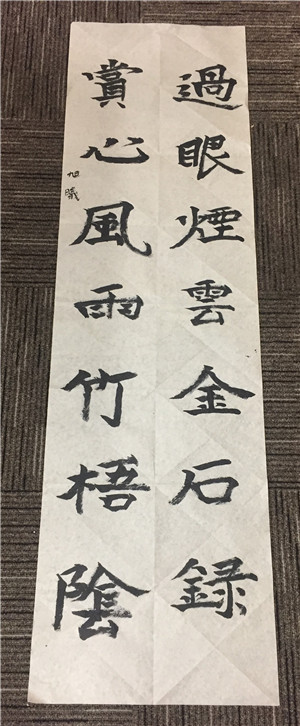 過眼煙雲金石録
賞心風雨竹梧陰
旭曦